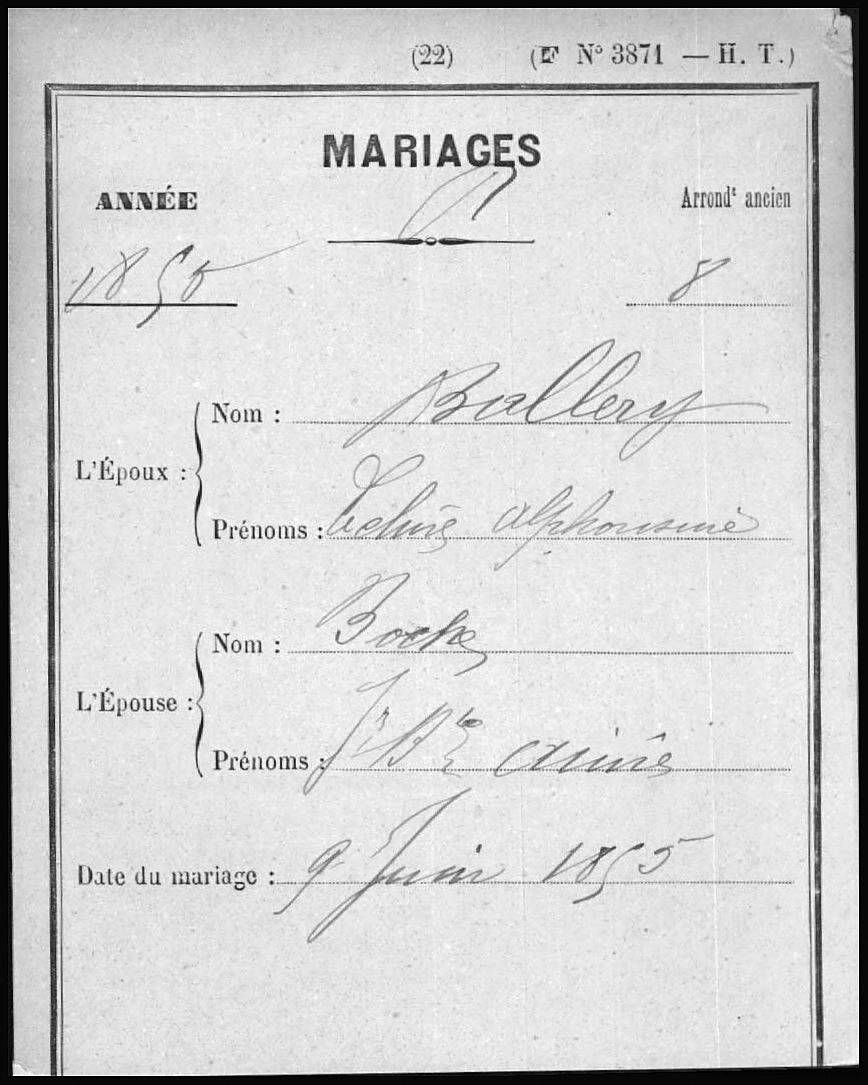 (22) (F N° 3871 — H. T.)
MARIAGES
ANNÉE
Arrondt ancien
1855
8
L'Époux :
Nom : Ballery
Prénoms : alphonsine
L'Épouse :
Nom :
Prénoms : Jn Bte aimée
Date du mariage : 9 Juin 1855